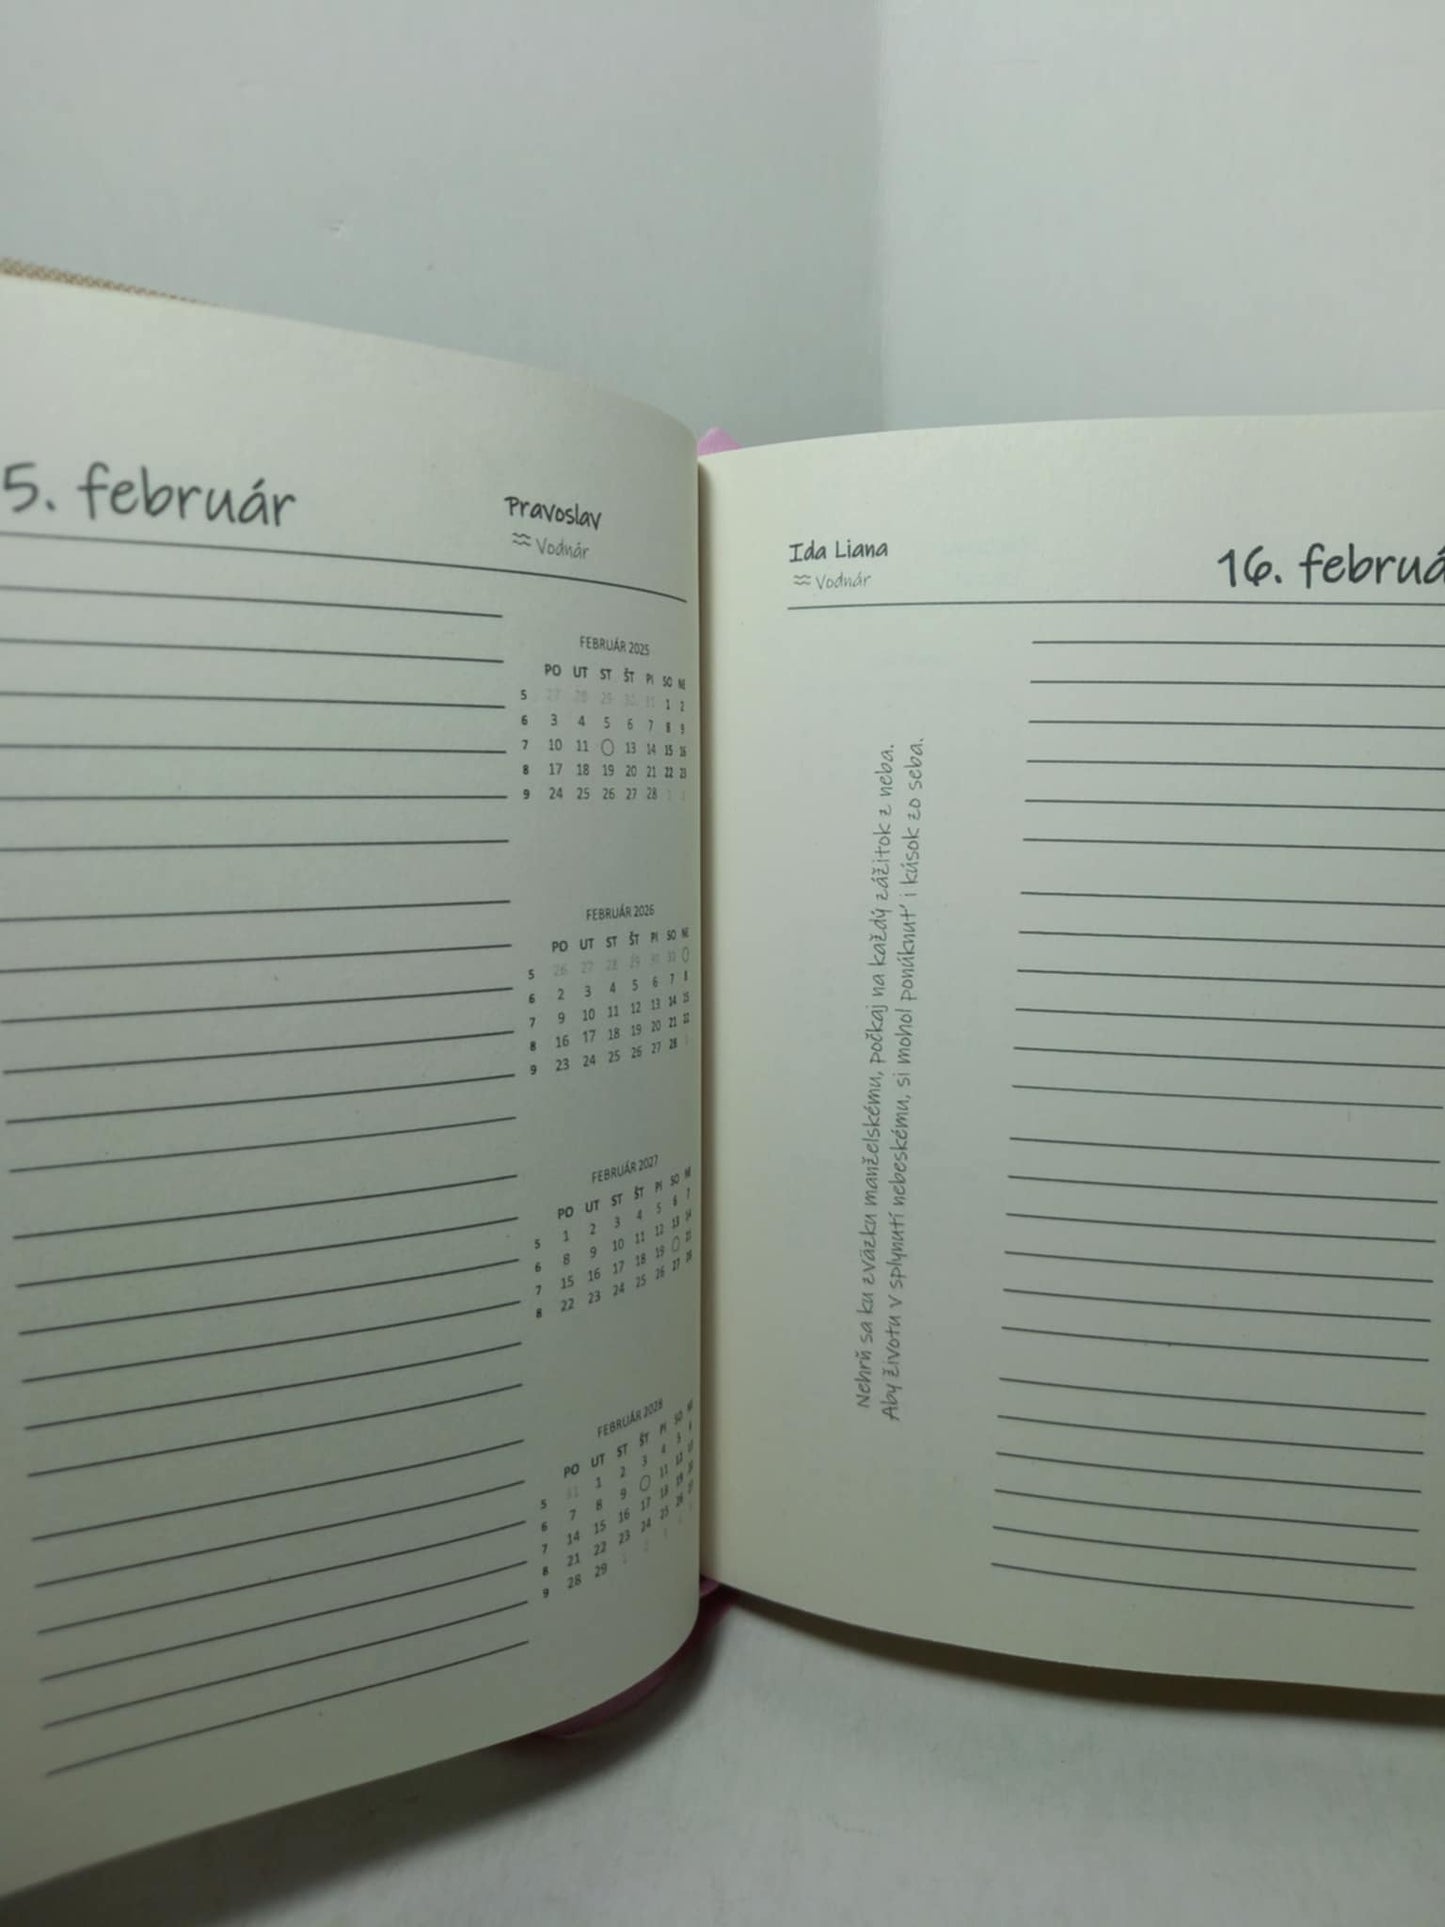 5. február
Pravoslav
Vodnár
FEBRUÁR 2025
PO UT ST ŠT PI SO NE
5 27 28 29 30 31 1 2
6 3 4 5 6 7 8 9
7 10 11 13 14 15 16
8 17 18 19 20 21 22 23
9 24 25 26 27 28 1 2
FEBRUÁR 2026
PO UT ST ŠT PI SO NE
5 26 27 28 29 30 31
6 2 3 4 5 6 7 8
7 9 10 11 12 13 14 15
8 16 17 18 19 20 21 22
9 23 24 25 26 27 28 1
FEBRUÁR 2027
PO UT ST ŠT PI SO NE
5 1 2 3 4 5 6 7
6 8 9 10 11 12 13 14
7 15 16 17 18 19 21
8 22 23 24 25 26 27 28
FEBRUÁR 2028
PO UT ST ŠT PI SO NE
5 31 1 2 3 4 5 6
6 7 8 9 11 12 13
7 14 15 16 17 18 19 20
8 21 22 23 24 25 26 27
9 28 29 1 2 3 4 5
Ida Liana
Vodnár
16. februá
Nehrň sa ku zväzku manželskému, počkaj na každý zážitok z neba.
Aby životu v splynutí nebeskému, si mohol ponúknuť i kúsok zo seba.